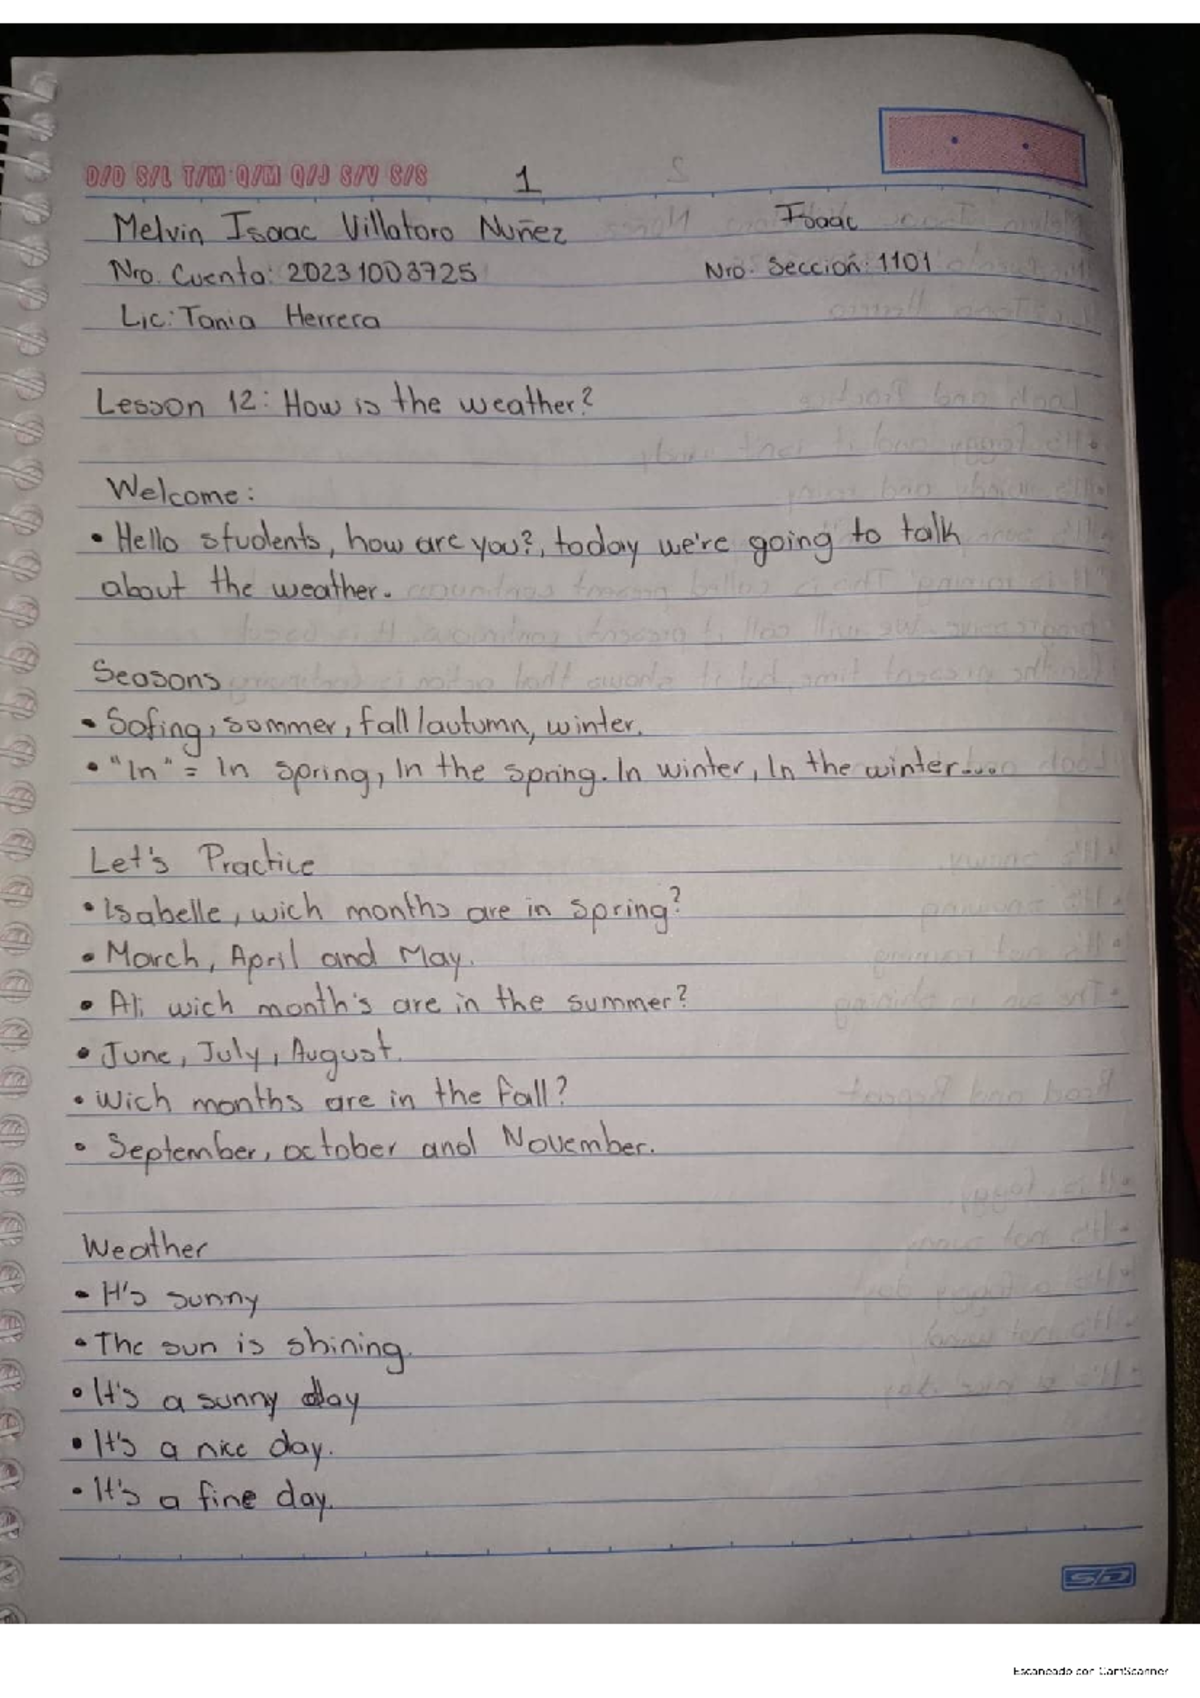 D/D S/L T/M Q/M Q/J S/V S/S 1
Melvin Isaac Villatoro Nuñez Isaac
Nro. Cuenta: 20231003725 Nro. Sección: 1101
Lic: Tania Herrera
Lesson 12: How is the weather?
Welcome:
• Hello students, how are you?, today we're going to talk
about the weather.
Seasons
• Sofing, sommer, fall/autumn, winter.
• "In" = In spring, In the spring. In winter, In the winter....
Let's Practice
• Isabelle, wich months are in spring?
• March, April and May.
• Ali wich month's are in the summer?
• June, July, August.
• Wich months are in the fall?
• September, october and November.
Weather
• It's sunny
• The sun is shining.
• It's a sunny day
• It's a nice day.
• It's a fine day.
S/D
Escaneado con CamScanner